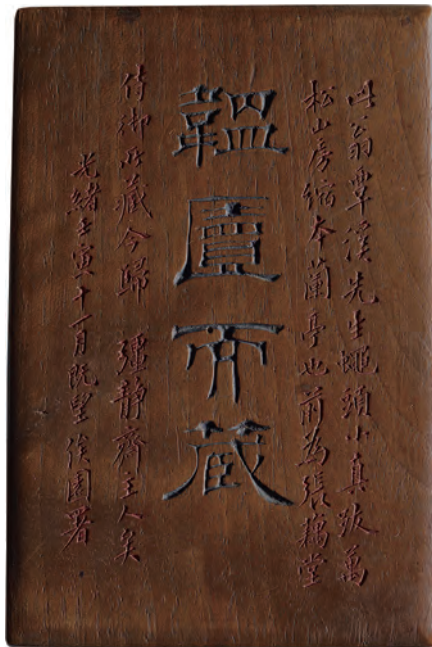 此翁覃溪先生蠅頭小真跋萬
松山房縮本蘭亭也前為張藕堂
韞匵而藏
侍御所藏今歸 彊靜齋主人矣
光緒壬寅十一月既望俟園署